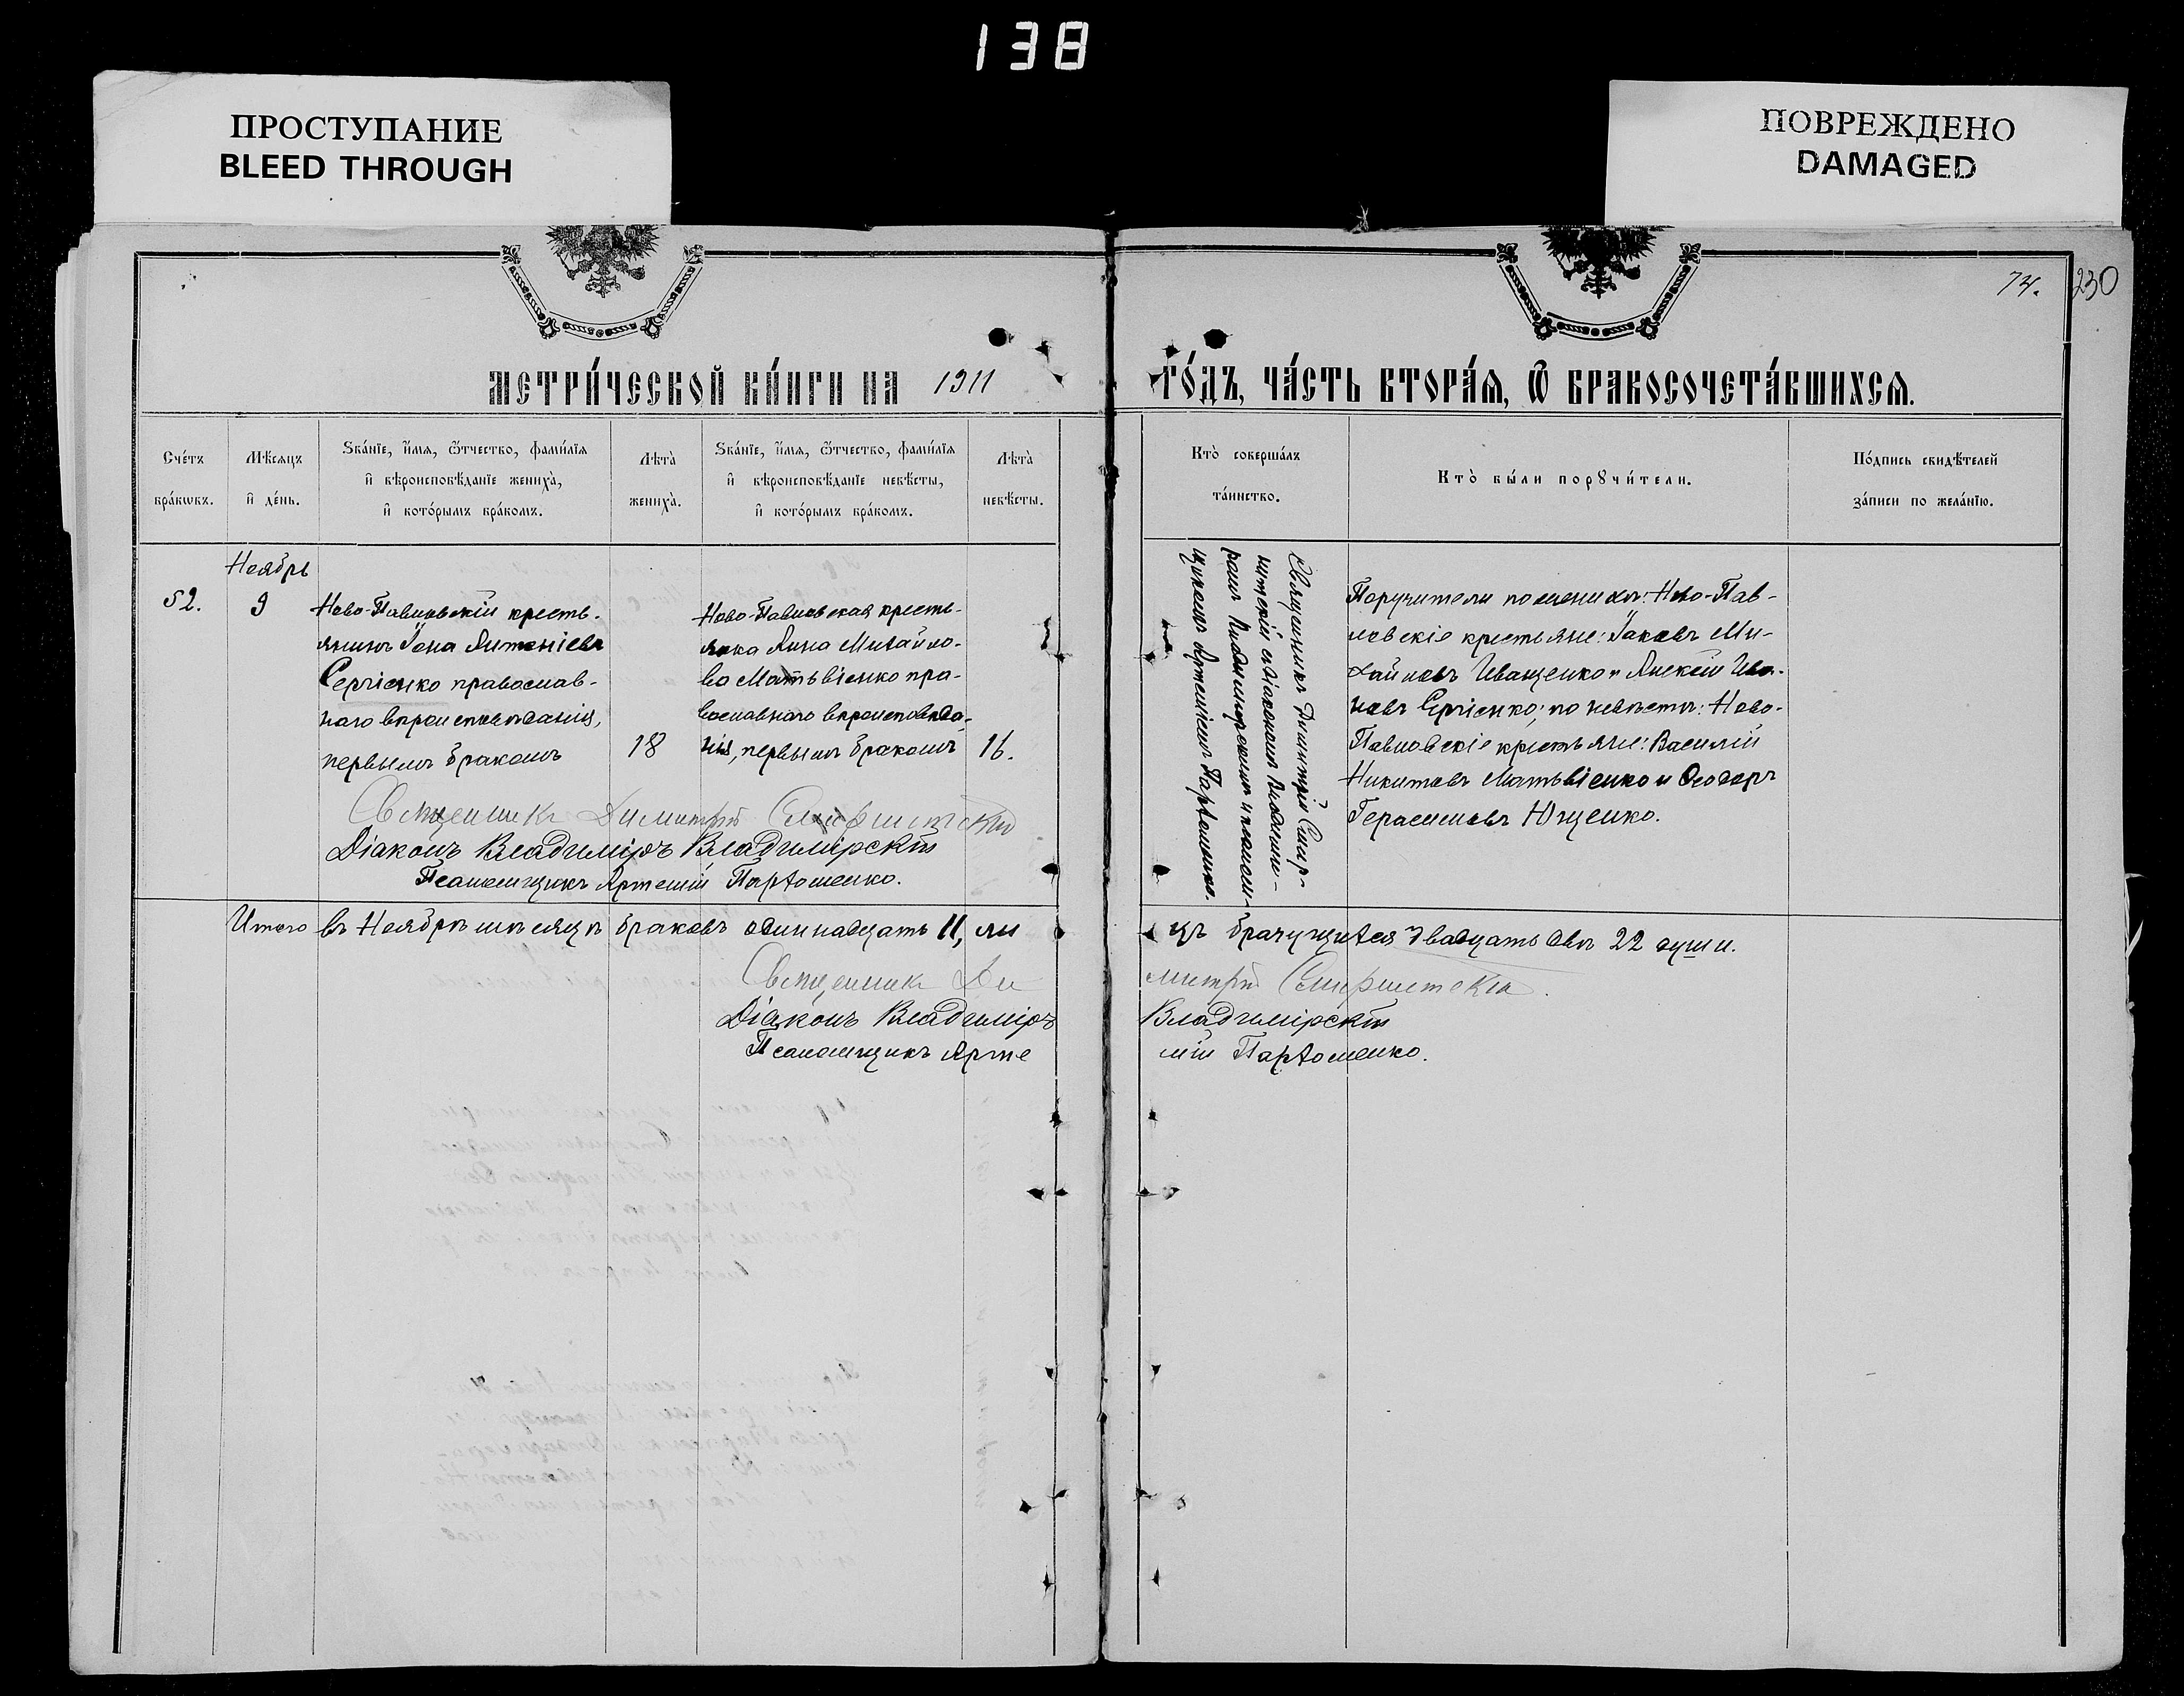 138
ПРОСТУПАНИЕ
BLEED THROUGH
ПОВРЕЖДЕНО
DAMAGED
74.
230
МЕТРИ́ЧЕСКОЙ КНИ́ГИ НА 1911
ГО́ДЪ, ЧА́СТЬ ВТОРА́Я, Ѿ БРАКОСОЧЕТА́ВШИХСЯ.
Сче́тъ
бра́кѡвъ.
Мѣ́сяцъ
и де́нь.
Ѕва́нїе, и́мя, ѻ́тчество, фами́лїя
и вѣроисповѣ́данїе жениха̀,
и кото́рымъ бра́комъ.
Лѣта̀
жениха̀.
Ѕва́нїе, и́мя, ѻ́тчество, фами́лїя
и вѣроисповѣ́данїе невѣ́сты,
и кото́рымъ бра́комъ.
Лѣта̀
невѣ́сты.
Кто̀ соверша́лъ
та́инство.
Кто̀ бы́ли порꙋчи́тели.
По́дпись свидѣ́телей
за́писи по жела́нїю.
Ноябрь
52.
9
Ново-Павловскій кресть-
янинъ Іона Антоніевъ
Сергіенко православ-
наго вѣроисповѣданія,
первымъ бракомъ
18
Ново-Павловская кресть-
янка Анна Михайло-
ва Матвѣіенко пра-
вославнаго вѣроисповѣда-
нія, первымъ бракомъ
16.
Священникъ Димитрій Смир-
нитскій съ діакономъ Владимі-
ромъ Владимірскимъ и псалом-
щикомъ Артеміемъ Парѳоменко.
Поручители по женихѣ: Ново-Пав-
ловскіе крестьяне: Іаковъ Ми-
хайловъ Иващенко и Алексій Ива-
новъ Сергіенко; по невѣстѣ: Ново-
Павловскіе крестьяне: Василій
Никитовъ Матьвіенко и Ѳеодоръ
Герасимовъ Ющенко.
Священникъ Димитрій
Діаконъ Владиміръ Владимірскій
Псаломщикъ Артемій Парѳоменко.
Итого въ Ноябрѣ мѣсяцѣ браковъ одиннадцать 11, ли
цъ брачущихся двадцать двѣ 22 души.
Священникъ Ди
митрій
Діаконъ Владиміръ
Владимірскій
Псаломщикъ Арте
мій Парѳоменко.